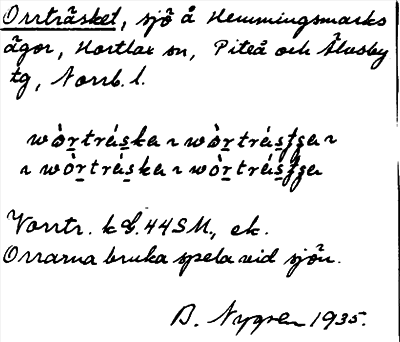 Orrträsket, sjö å Hemmingsmarks
ägor, Hortlax sn, Piteå och Älvsby
tg, Norrb. l.
wòr̲trás̲ka ~ wòr̲trás̲ʂa ~
~ wòr̲tráska ~ wòr̲trás̲ʂa
Vorrtr. k 44SM., ek.
Orrarna bruka spela vid sjön.
D. Nygren 1935.